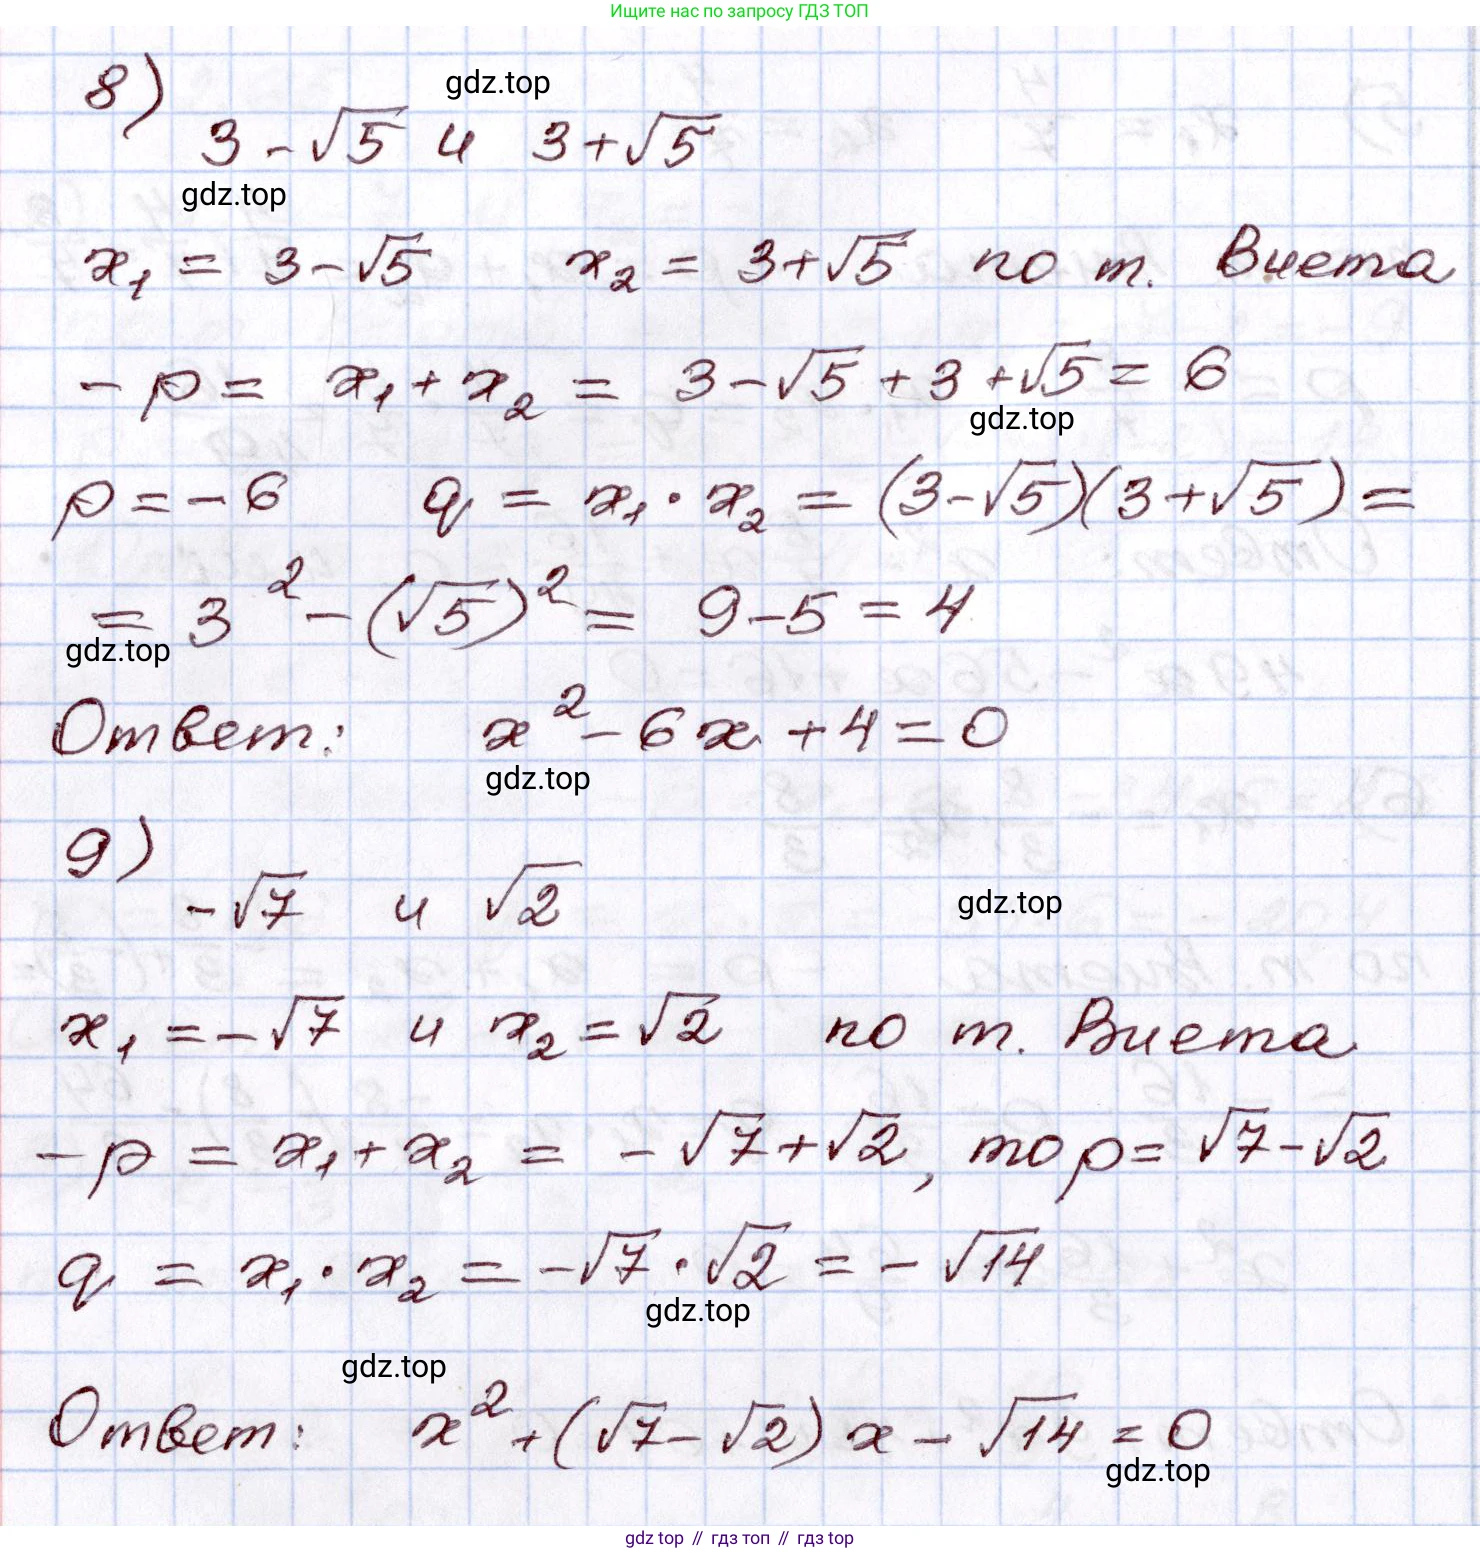 Ищите нас по запросу ГДЗ ТОП
8)
gdz.top
3 - √5 и 3 + √5
gdz.top
x₁ = 3 - √5 x₂ = 3 + √5 по т. Виета
- p = x₁ + x₂ = 3 - √5 + 3 + √5 = 6
gdz.top
p = - 6 q = x₁ · x₂ = (3 - √5)(3 + √5) =
= 3² - (√5)² = 9 - 5 = 4
gdz.top
Ответ: x² - 6x + 4 = 0
gdz.top
9)
- √7 и √2
gdz.top
x₁ = - √7 и x₂ = √2 по т. Виета
- p = x₁ + x₂ = - √7 + √2, то p = √7 - √2
q = x₁ · x₂ = - √7 · √2 = - √14
gdz.top
gdz.top
Ответ: x² + (√7 - √2) x - √14 = 0
gdz.top
gdz top // гдз топ // гдз top